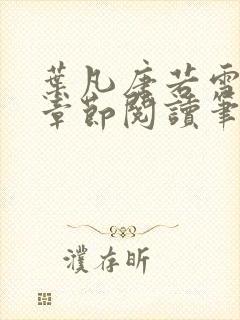 葉凡唐若雪
章節閱讀筆
濮存昕